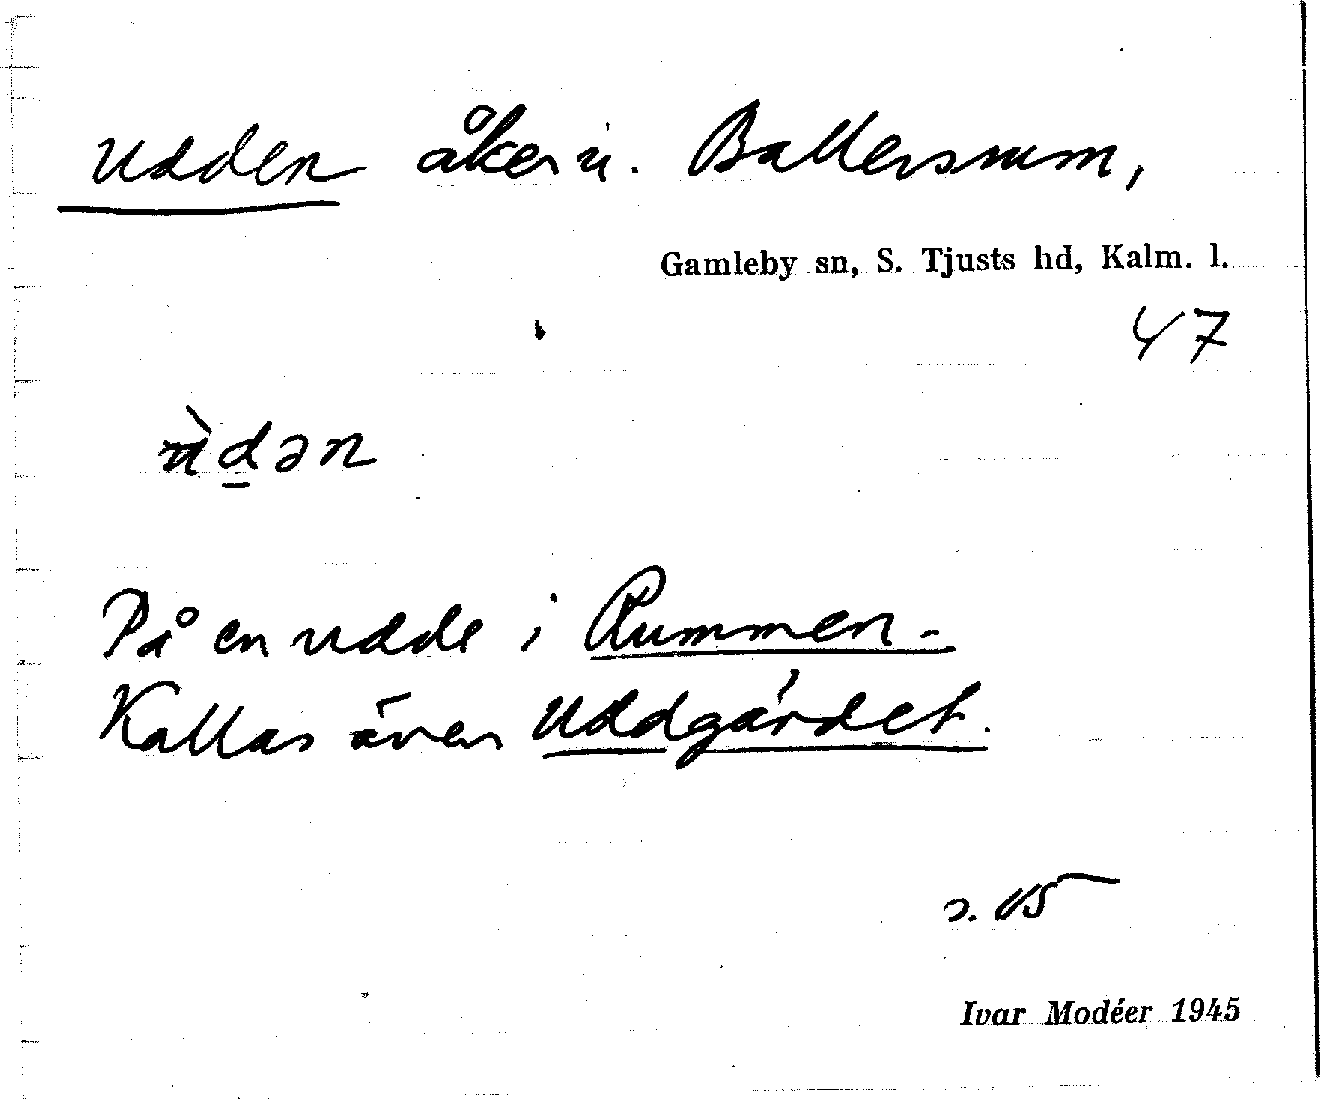 Udden åker u. Ballersrum,
Gamleby sn, S. Tjusts hd, Kalm. l.
47
ùd̲ən
På en udde i Rummen.
Kallas även Uddgärdet.
s. 15
Ivar Modéer 1945